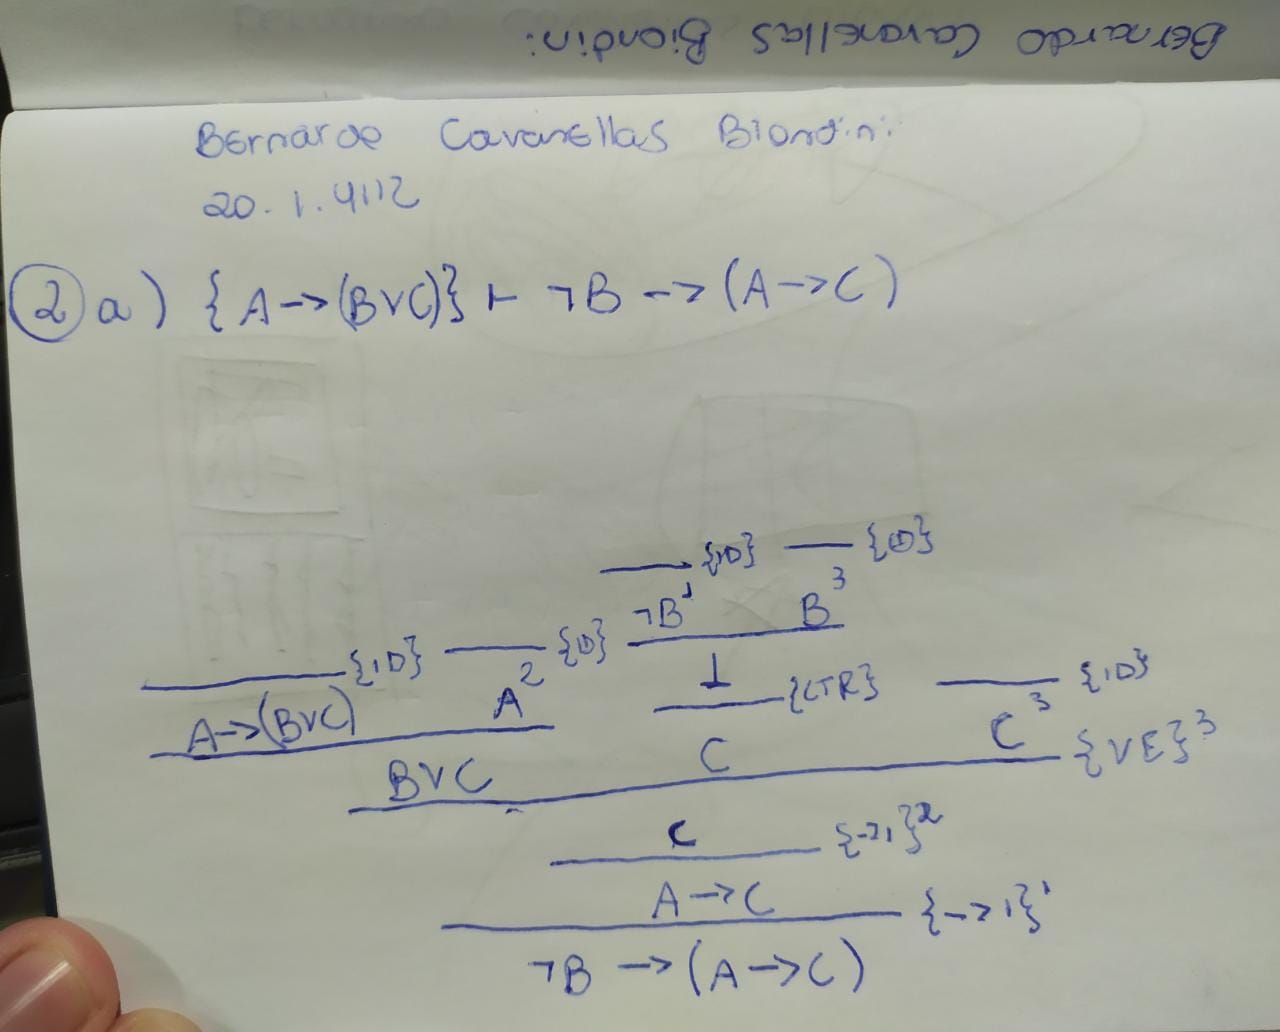 Bernardo Cavanellas Biondini
Bernardo Cavanellas Biondini
20.1.4112
2 a) {A→(B∨C)} ⊢ ¬B → (A→C)
{ID} {ID}
¬B¹ B³
{ID} {ID} {ID}
A→(B∨C) A² ⊥ {CTR} C³
B∨C C {∨E}³
C {→I}²
A→C {→I}¹
¬B → (A→C)